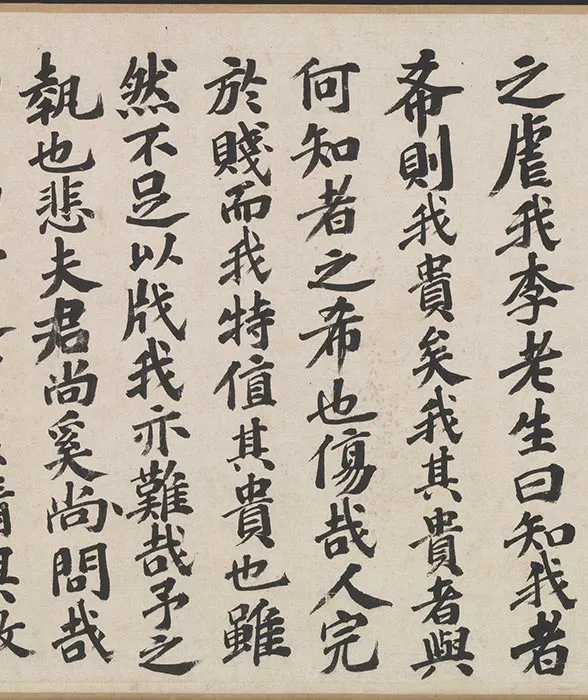 之虐我李老生曰知我者
希則我貴矣我其貴者與
何知者之希也傷哉人完
於賤而我特值其貴也雖
然不足以戕我亦難哉予之
執也悲夫君尚奚尚問哉